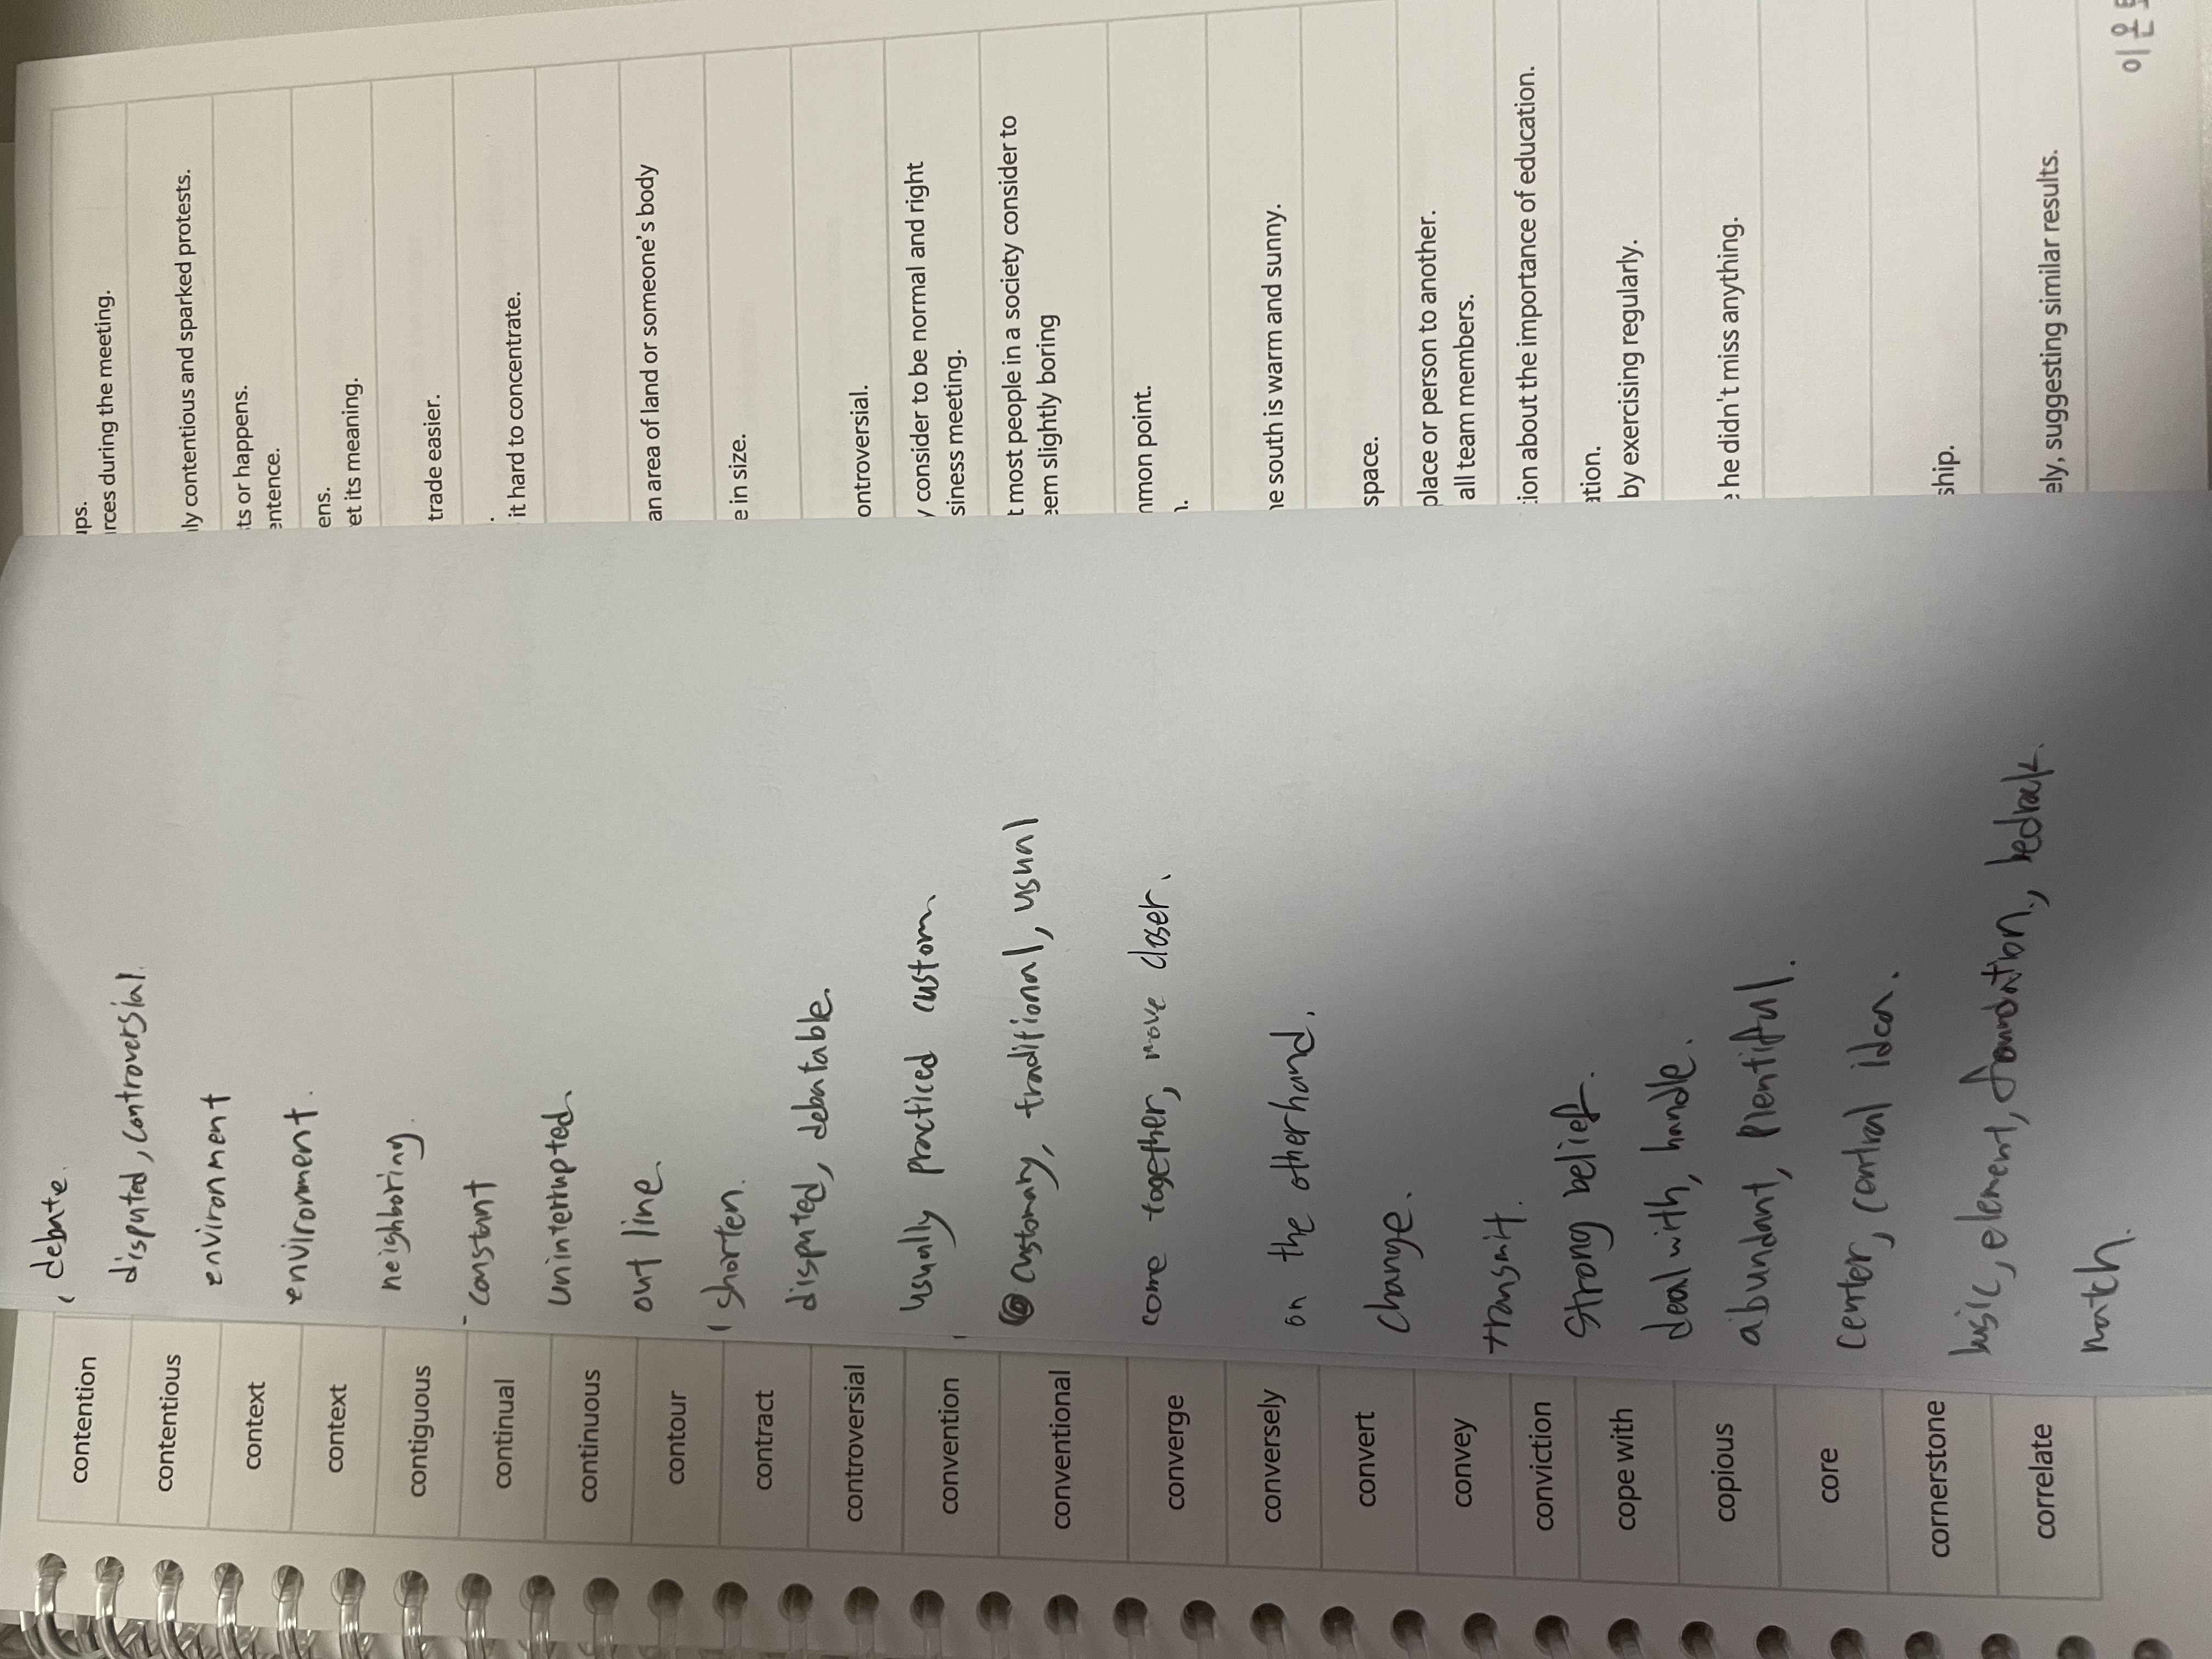 contention
, debate.
ups.
rces during the meeting.
contentious
disputed, controversial.
ly contentious and sparked protests.
context
environment
ts or happens.
entence.
context
environment.
ens.
et its meaning.
contiguous
neighboring.
trade easier.
continual
- constant
.
it hard to concentrate.
continuous
uninterrupted.
contour
out line.
an area of land or someone's body
contract
( shorten.
e in size.
controversial
disputed, debatable.
ontroversial.
convention
usually practiced custom.
y consider to be normal and right
siness meeting.
conventional
customary, traditional, usual
t most people in a society consider to
eem slightly boring
converge
come together, move closer.
nmon point.
n.
conversely
on the otherhand.
ne south is warm and sunny.
convert
change.
space.
convey
transmit.
place or person to another.
all team members.
conviction
strong belief.
ion about the importance of education.
cope with
deal with, handle.
ation.
by exercising regularly.
copious
abundant, plentiful.
e he didn't miss anything.
core
center, central idea.
cornerstone
basic, element, foundation, bedrock.
ship.
correlate
match.
ely, suggesting similar results.
이윤